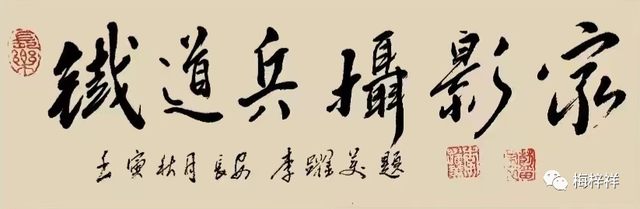 鐵道兵攝影家
壬寅秋月長安 李躍英題
梅梓祥